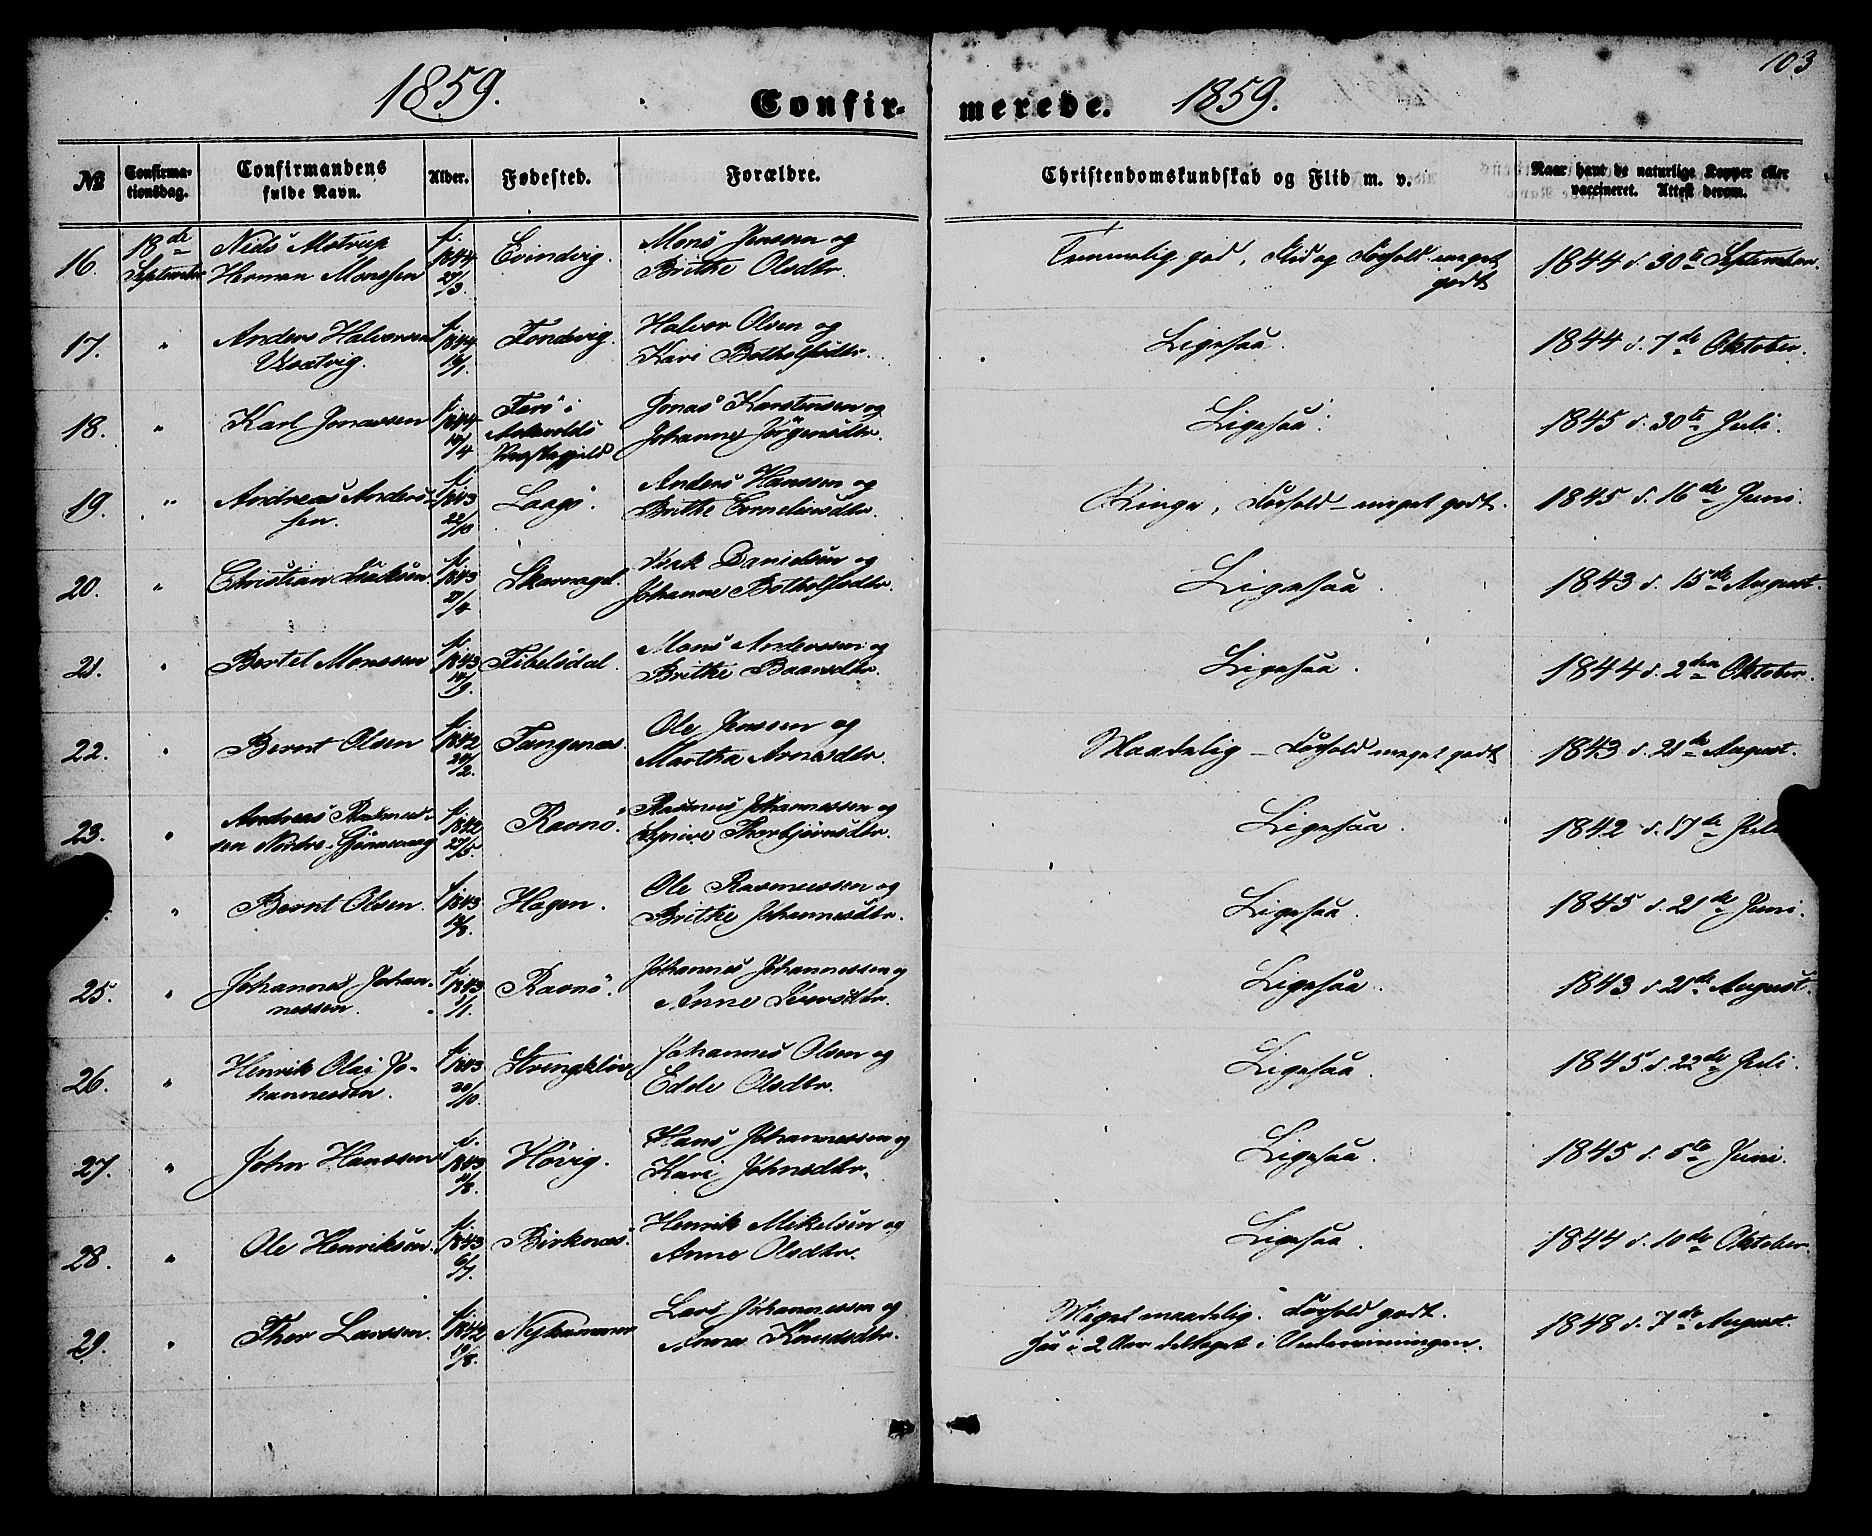 103
1859. Confir- merede. 1859.
№ Confirma-tionsdag. Confirmandens fulde Navn. Alder. Fødested. Forældre. Christendomskundskab og Flid m. v. Naar havt de naturlige Kopper eller vaccineret. Attest derom.
16. 18de September Niels Motrup Herman Monssen f. 1844 27/3. Evindvig. Mons Jenssen og Brithe Olsdtr. Temmelig god, Flid og Forhold meget godt 1844 d. 30te September.
17. " Anders Halvorsen f. 1844 Halvor Olsen og Kari Botholfsdtr. Ligesaa. 1844 d. 7de Oktober.
18. " Karl Jonassen f. 1844 i Præstegjeld Jonas Karstensen og Johanne Jørgensdtr. Ligesaa. 1845 d. 30te Juli.
19. " Andreas Anders-sen. f. 1843 22/10 Anders Hanssen og Brithe Corneliusdtr. Ringe, Forhold meget godt. 1845 d. 16de Juni.
20. " Christian f. 1843 Danielsen og Johanne Botholfsdtr. Ligesaa. 1843 d. 15de August.
21. " Bertel Monssen f. 1843 Mons Anderssen og Brithe Ligesaa. 1844 d. 2den Oktober.
22. " Bernt Olsen f. 1842 20/2. Tangenæs. Ole Jenssen og Martha Arnesdtr. Maadelig – Forhold meget godt 1843 d. 21de August.
23. " Andreas Rasmus-sen Nordre f. 1842 Ravnö. Rasmus Johannessen og Thorbjørnsdtr. Ligesaa. 1842 d. 17de
" Bernt Olsen. f. 1843 Hagen. Ole Rasmussen og Brithe Johannesdtr. Ligesaa. 1845 d. 21de Juni.
25. " Johannes Johan-nessen. f. 1843 Ravnö. Johannes Johannessen og Anne Iversdtr. Ligesaa. 1843 d. 21de August.
26. " Henrik Olai Jo-hannessen. f. 1843 20/10. Johannes Olsen og Edele Olsdtr. Ligesaa. 1845 d. 22de Juli.
27. " John Hanssen f. 1843 Hövig. Hans Johannessen og Kari Johnsdtr. Ligesaa. 1845 d. 5te Juni.
28. " Ole Henriksen. f. 1843 6/7. Birknæs. Henrik Mikelsen og Anne Olsdtr. Ligesaa. 1844 d. 10de Oktober.
29. " Thor Larssen. f. 1842 19/8. Lars Johannessen og Anna Knudsdtr. Meget maadelig. Forhold godt.
i 2 Aar deltaget i Undervisningen. 1848 d. 7de August.